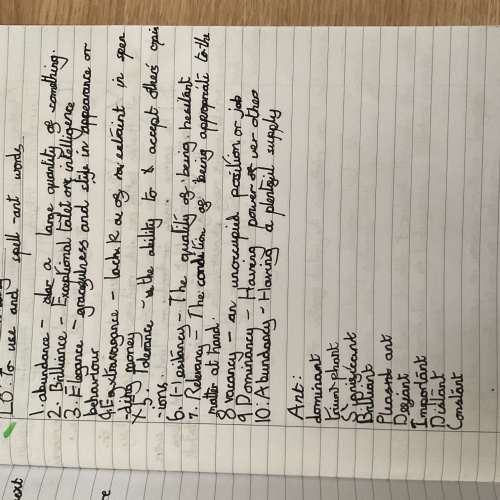 LO: To use and spell -ant words
1. abundance - a large quantity of something.
2. Brilliance - Exceptional talet or intelligence
3. Elegance - gracefulness and style in appearance or
behaviour
4. Extravagance - lack of restraint in spen
-ding money
5. Tolerance - the ability to accept others opin
-ions.
6. Hesitancy - The quality of being hesitant
7. Relevancy - The condition of being appropriate to the
matter at hand.
8 vacancy - an unoccupied position or job
9 Dominancy - Having power over other
10. Abundancy - Having a plentyil supply
Ant:
dominant
triumphant
Significant
Brilliant
Pleasant
Defiant
Important
Distant
Constant